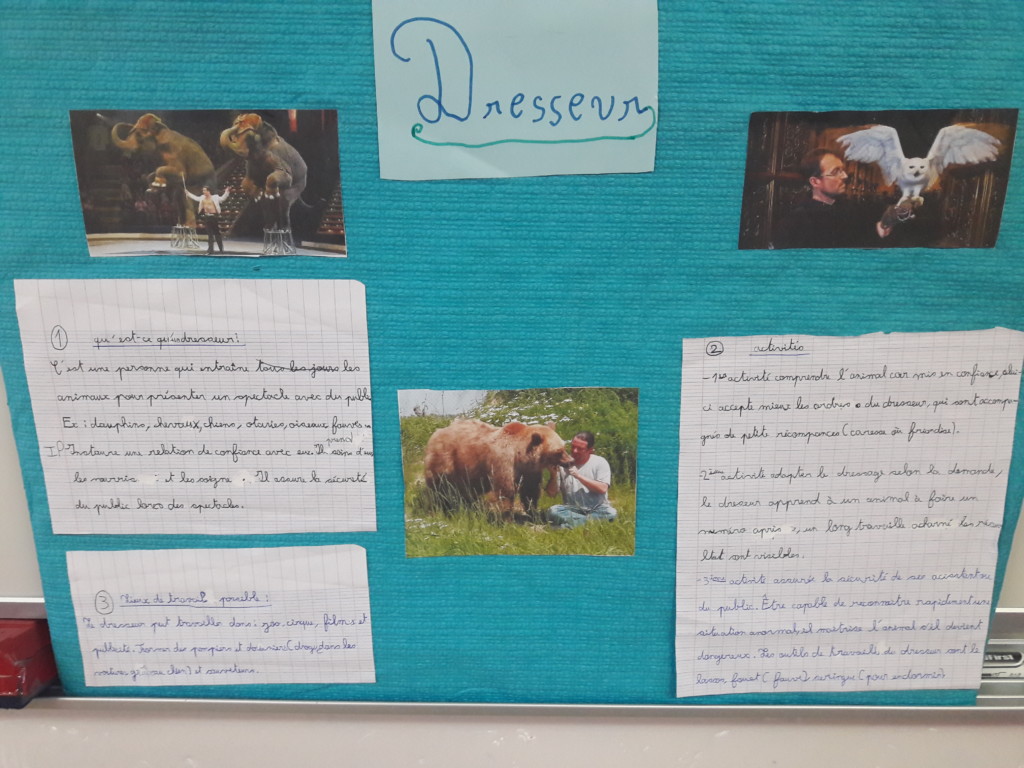 Dresseur
① qu'est-ce qu'un dresseur?
C'est une personne qui entraîne tous les jours les
animaux pour présenter un spectacle avec du public
Ex : dauphins, chevaux, chiens, otaries, oiseaux, fauves
Il instaure une relation de confiance avec eux. Il prend soin d'eux
les nourris et les soigne. Il assure la sécurité
du public lors des spectacles.
② activités
- 1ère activité comprendre l'animal car mis en confiance, celui-
ci accepte mieux les ordres du dresseur, qui sont accompa-
gnés de petite récompances (caresse où friandise).
2ième activité adapter le dressage selon la demande,
le dresseur apprend à un animal à faire un
numéro après un long travaille acharné les résu
ltat sont visibles.
- 3ième activité assurés la sécurité de ses assistant ou
du public. Être capable de reconnaître rapidement une
situation anormal, et maîtrise l'animal s'il devient
dangereux. Les outils de travaille du dresseur sont le
lasson fouet (fauve) seringue (pour endormir)
③ Lieux de travail possible :
Le dresseur peut travailler dans : zoo, cirque, films et
publicité. Former des pompiers et douaniers (drogue dans les
voitures chien) et sauveteurs.